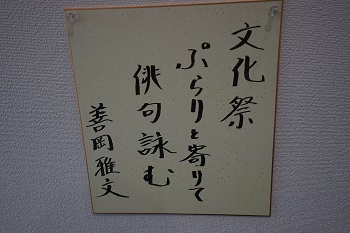 文化祭
ぷらりと寄りて
俳句詠む
善岡雅文